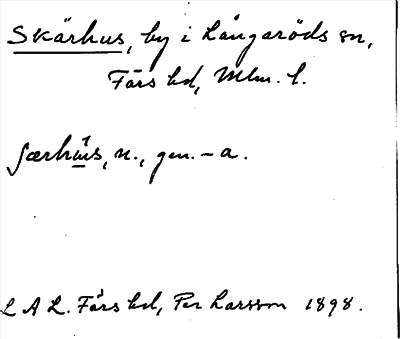 Skärhus, by i Långaröds sn,
Färs hd, Mlm. l.
ʃærhu̲s, n., gen. – a.
L A L. Färs hd, Per Larsson 1898.